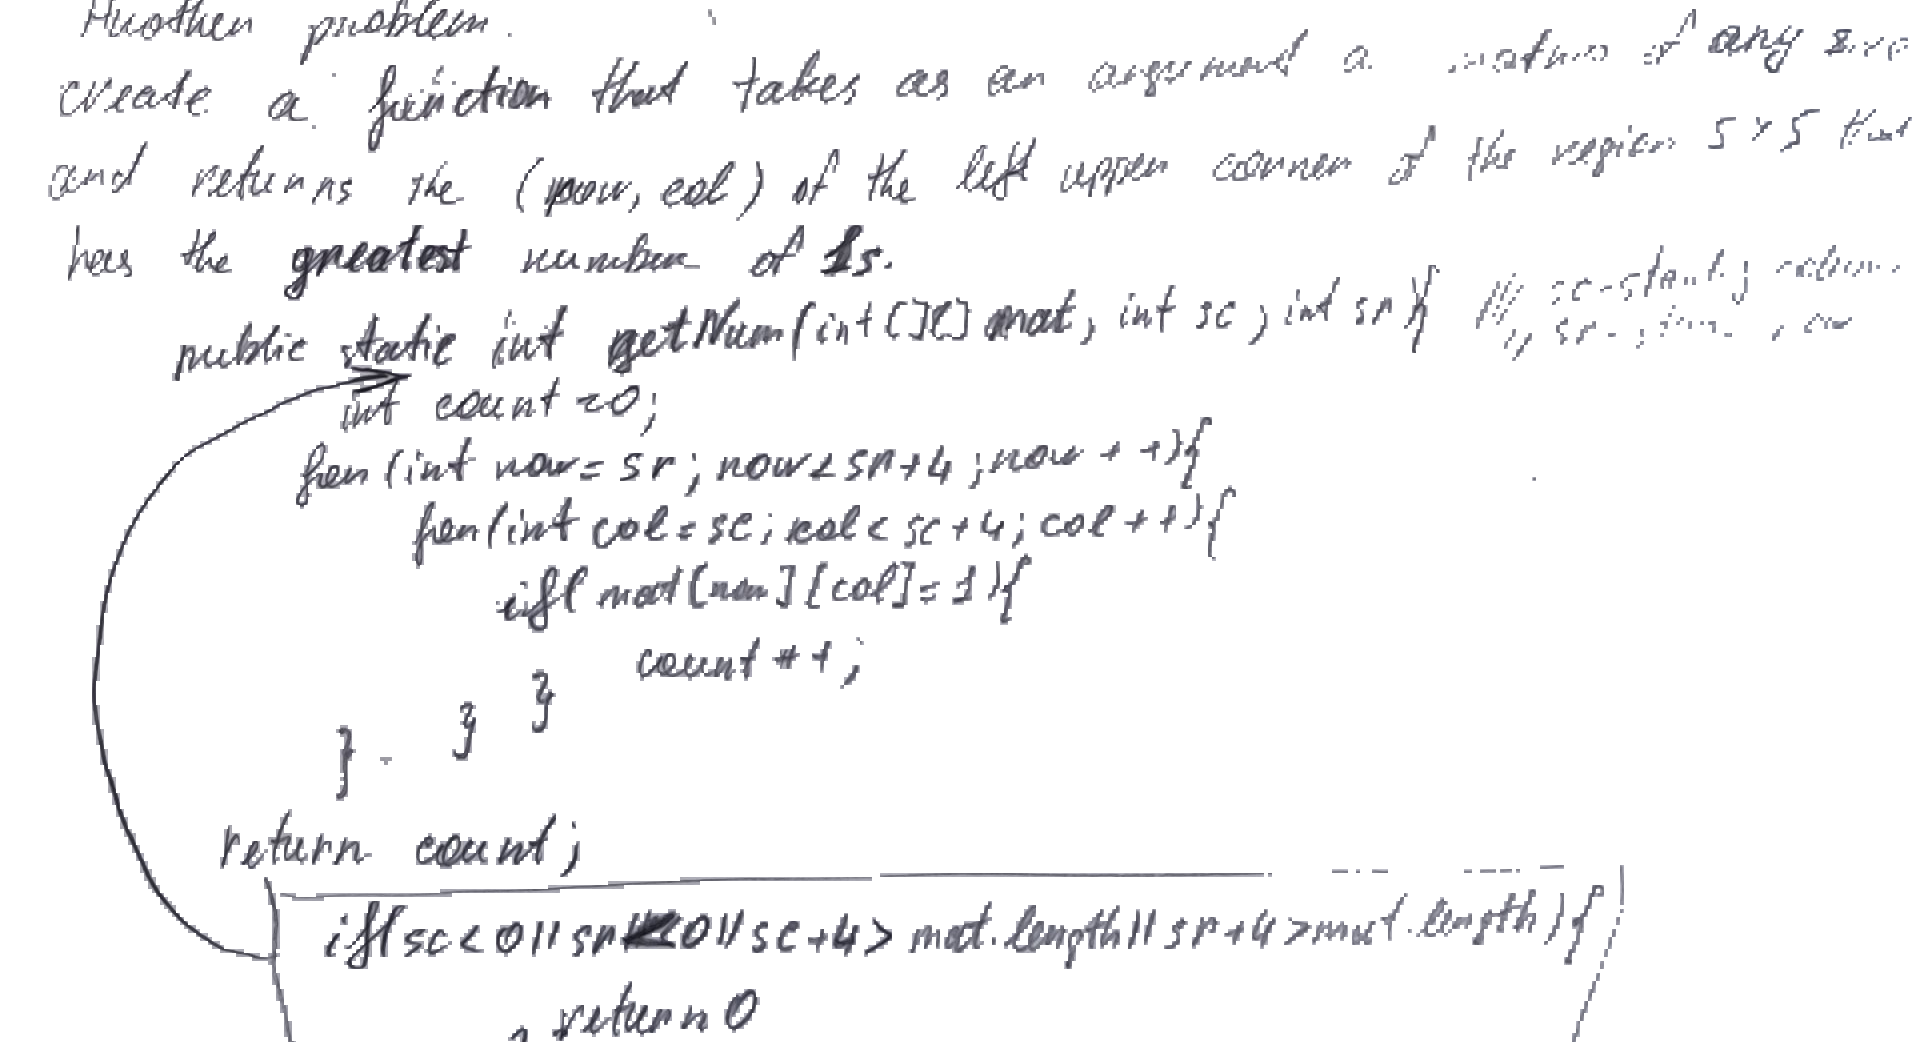 Another problem.
create a function that takes as an argument a matrix of any size
and returns the (row, col) of the left upper corner of the region 5×5 that
has the greatest number of 1s.
public static int getNum(int[][] mat, int sc, int sr){ // sc-start
int count=0;
for(int row=sr; row<sr+4; row++){
for(int col=sc; col<sc+4; col++){
if(mat[row][col]=1){
count++;
}
}
}
return count;
if(sc<0||sr<0||sc+4>mat.length||sr+4>mat.length){
return 0